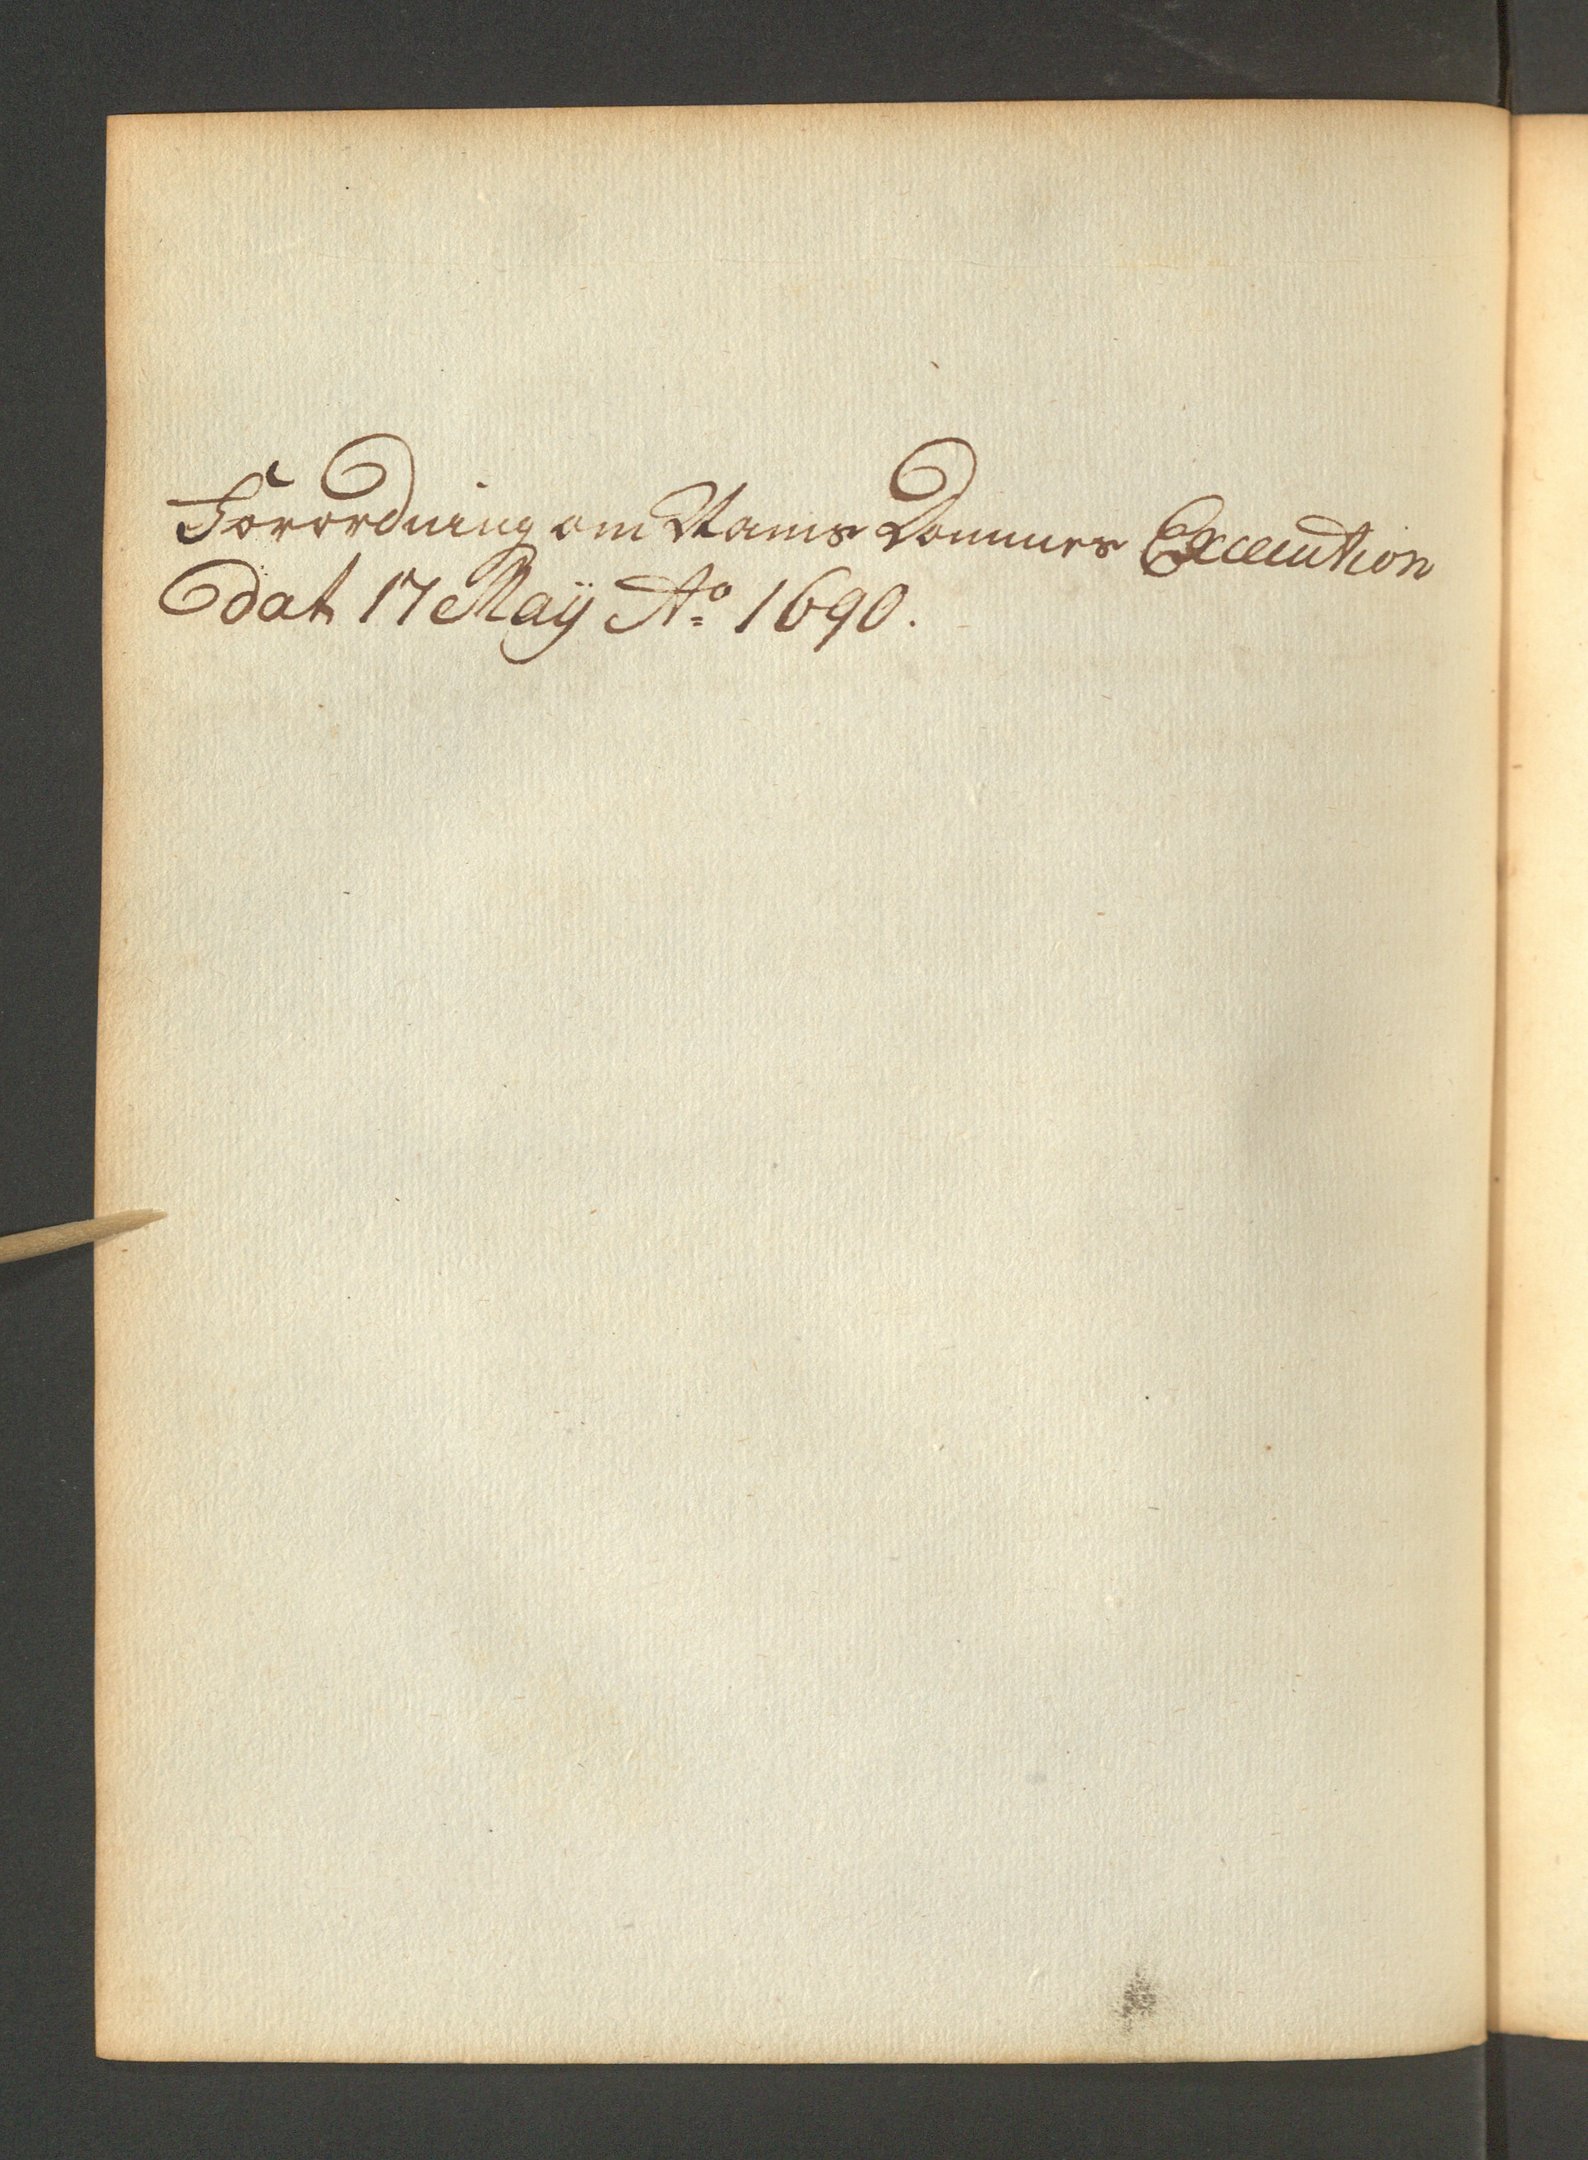 Forordning om Vams Dommes Execution
dat 17 Maÿ Aº 1690.